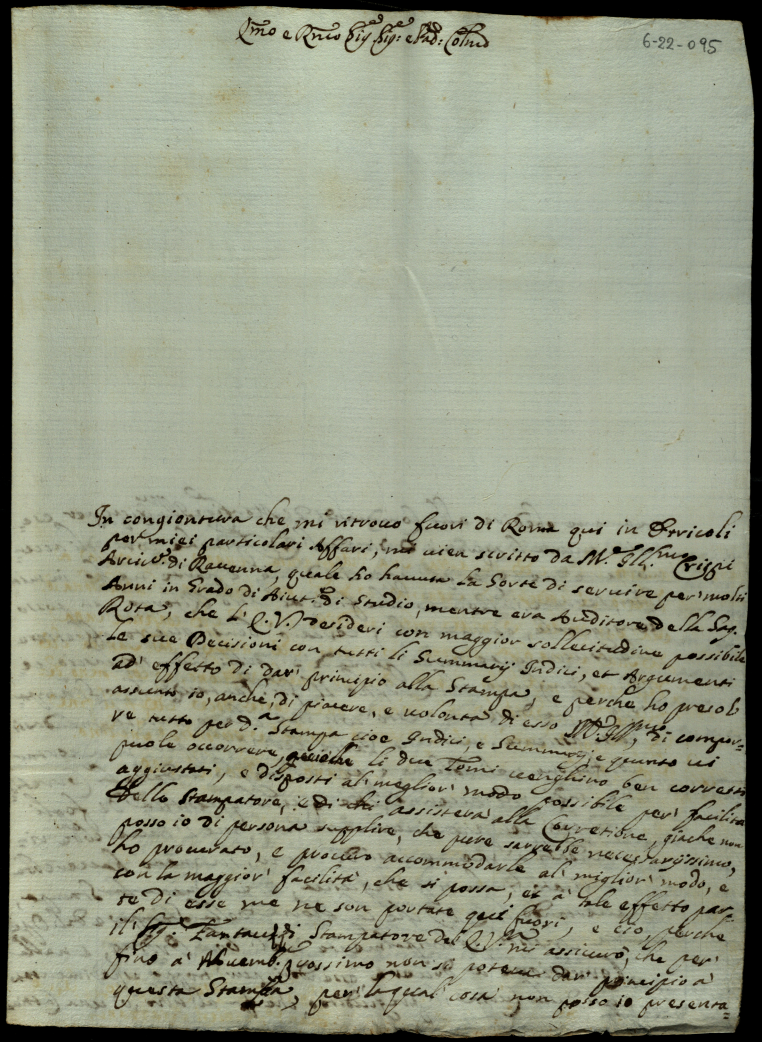 6-22-095
Illmo e Rmo Sig. Sig. e Pad: Colmo
In congiontura che mi ritrovo fuori di Roma qui in Otricoli
per miei particolari Affari, mi vien scritto da M.r Ill.mo Crispi
Arciv.o di Ravenna, quale ho havuta la Sorte di servire per molti
Anni in Grado di Aiut.e di Studio, mentre era Auditore della Sag.
Rota, che V.S. desideri con maggior sollecitudine possibile
le sue Decisioni con tutti li Summarij Indici, et Argumenti
ad effetto di dar principio alla Stampa, e perche ho presol'
assunto io, anche, di piacere, e volontà di esso di compor-
re tutto per d.a Stampa cioe Indici, e Summarij, e quanto vi
puole occorrere, li due Tomi venghino ben corretti
aggiustati, e disposti al meglior modo possibile per facilità
dello Stampatore, e di chi assisterà alla Corretione, giache non
posso io di persona supplire, che pure sarrebbe necessarissimo,
ho procurato, e procuro accommodarle al miglior modo, e
con la maggior facilità, che si possa, et à tale effetto par-
te di esse me ne son portate qui fuori, e ciò, perche
il Sig: Fantauzzi Stampatore del mi assicurò, che per
fino à Novemb. prossimo non si poteva dar principio à
questa Stampa, per la qual cosa non posso io presenta-